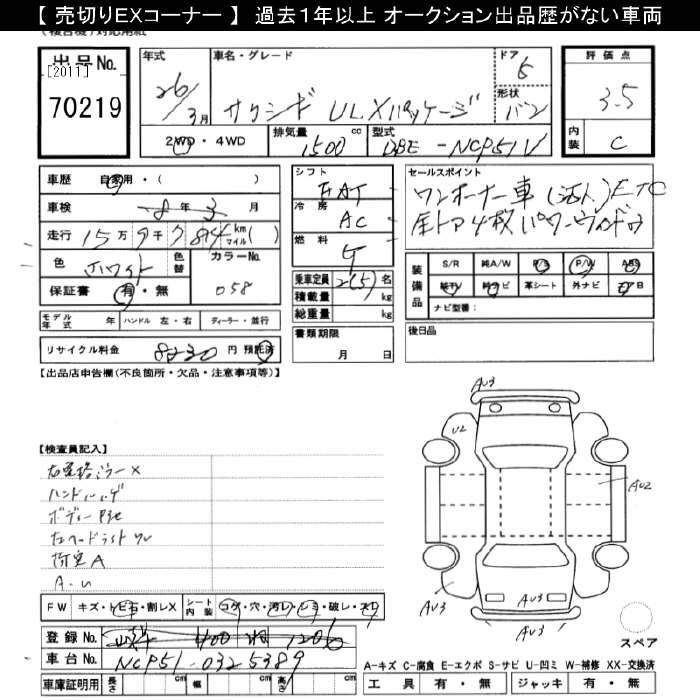 【 売切りEXコーナー 】 過去1年以上 オークション出品歴がない車両
出品No. [2011] 70219
年式 26/3月
車名・グレード サクシード ULXパッケージ
ドア 5
形状 バン
評価点 3.5
内装 C
2WD・4WD
排気量 1500 cc
型式 DBE-NCP51V
車歴 自家用・( )
車検 8年3月
走行 15万9千7 km マイル( )
色 ホワイト
色替
カラーNo. 058
保証書 有・無
シフト FAT
冷房 AC
燃料 G
乗車定員 2(5)名
積載量 kg
総重量 kg
書類期限 月 日
セールスポイント
ワンオーナー車(法人)ETC
全ドア4枚パワーウィンドウ
装備品 S/R 純A/W P/S P/W ABS
純TV 純ナビ 革シート 外ナビ エアB
ナビ型番:
後日品
モデル年式 年 ハンドル 左・右 ディーラー・並行
リサイクル料金 8230円 預託済
【出品店申告欄(不良箇所・欠品・注意事項等)】
【検査員記入】
ハンドルハゲ
荷室A
A・U
FW キズ・トビ石・割レX
シート内装 コゲ・穴・汚レ・シミ・破レ・スレ
登録No. 400 1206
車台No. NCP51-0325389
車庫証明用 長さ cm 幅 cm 高さ cm
AU3
U2
AU2
AU3
AU3
AU3
スペア
A-キズ C-腐食 E-エクボ S-サビ U-凹ミ W-補修 XX-交換済
工具 有・無 ジャッキ 有・無